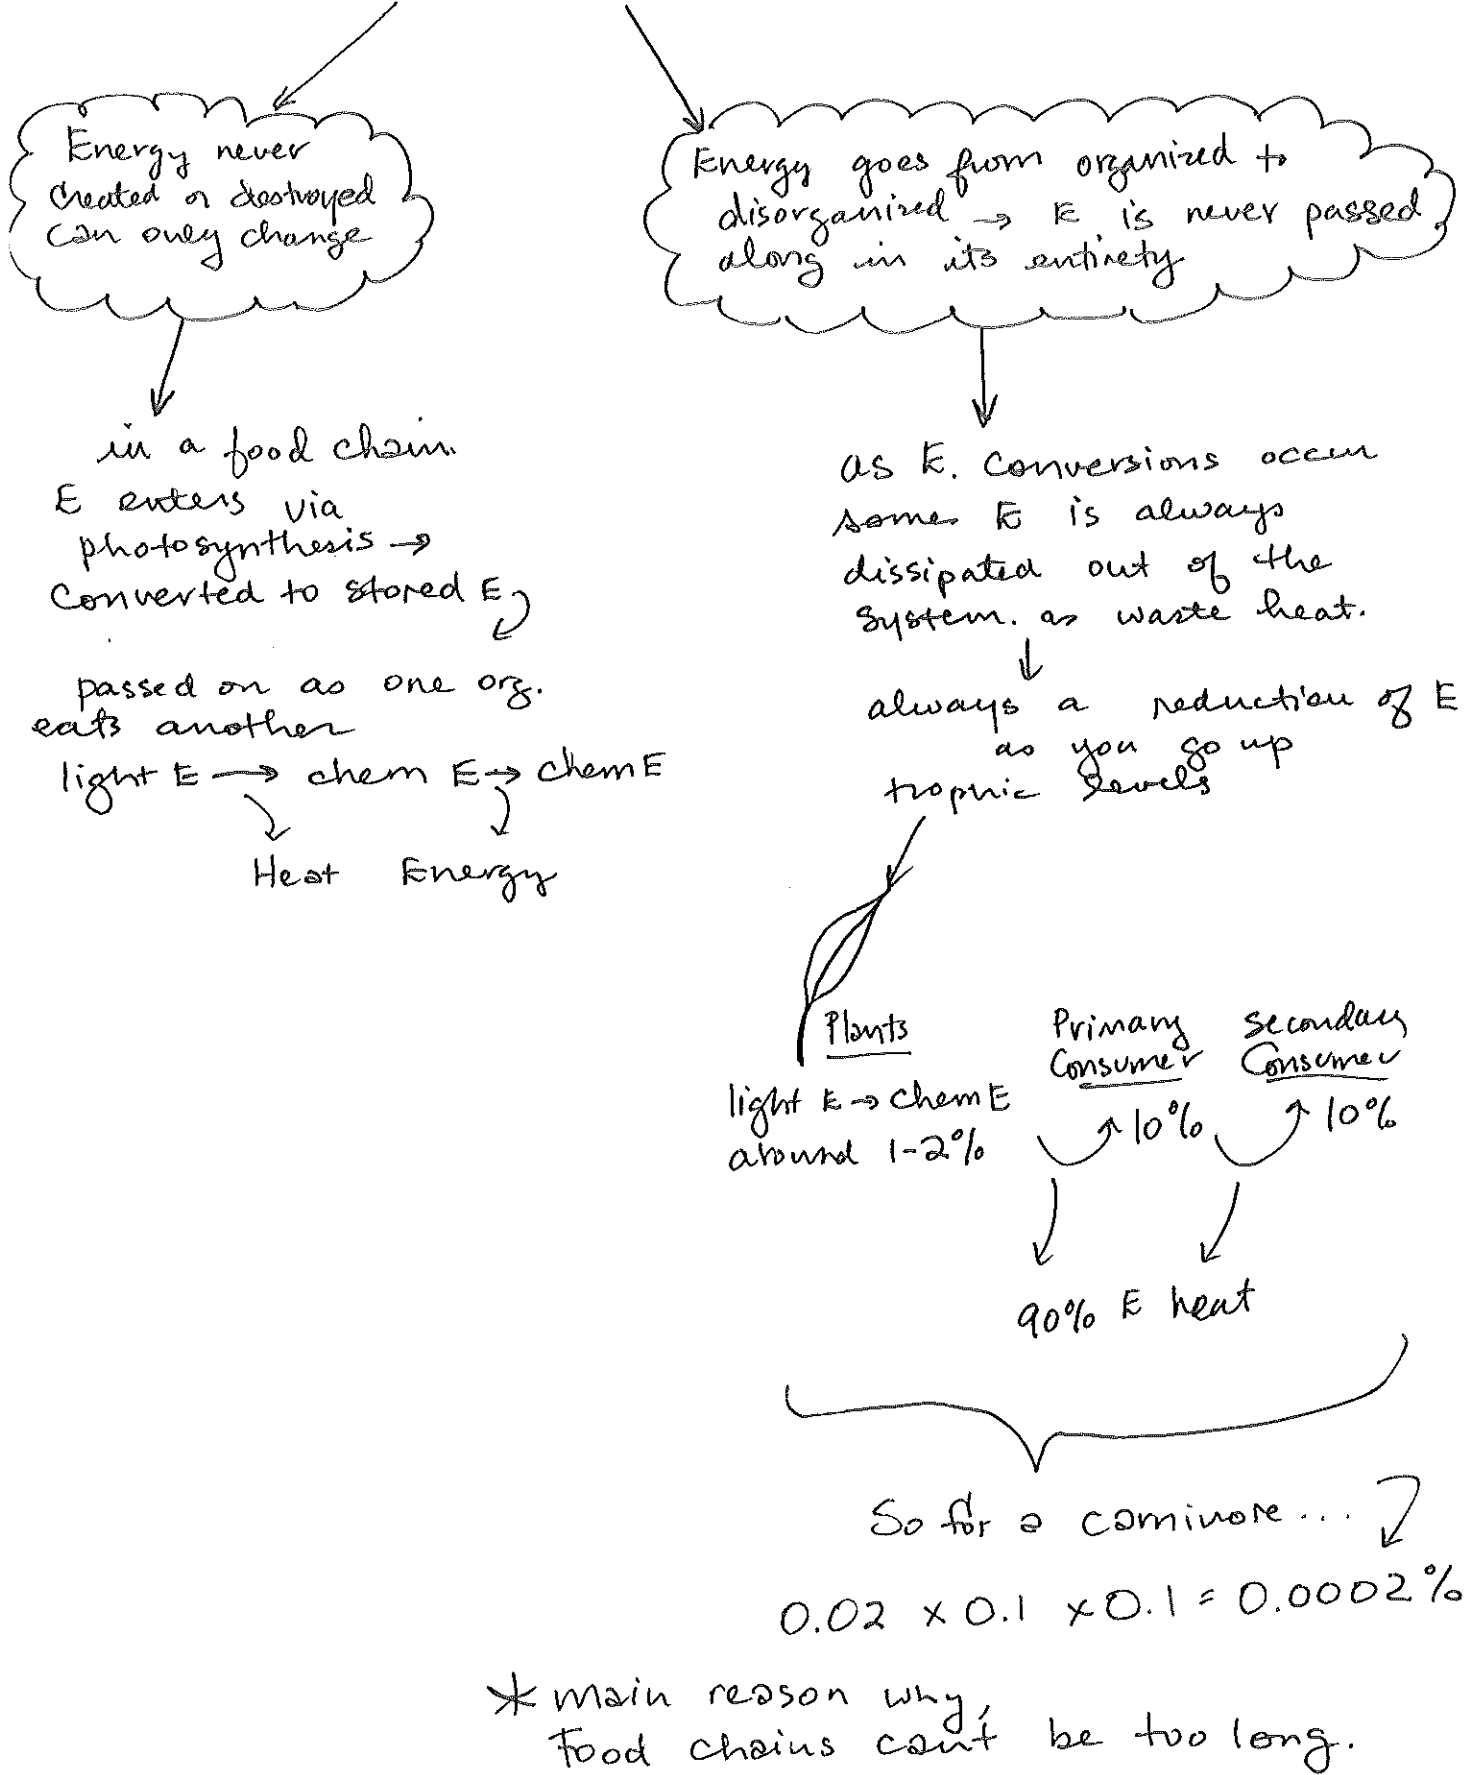 Energy never
created or destroyed
can only change
in a food chain.
E enters via
photosynthesis →
converted to stored E
passed on as one org.
eats another
light E → chem E → chem E
Heat Energy
Energy goes from organized to
disorganized → E is never passed
along in its entirety
as E. conversions occur
some E is always
dissipated out of the
system. as waste heat.
always a reduction of E
as you go up
trophic levels
Plants
light E → chem E
around 1-2%
Primary
Consumer
10%
Secondary
Consumer
10%
90% E heat
So for a carnivore...
0.02 x 0.1 x 0.1 = 0.0002%
* main reason why,
Food chains can't be too long.